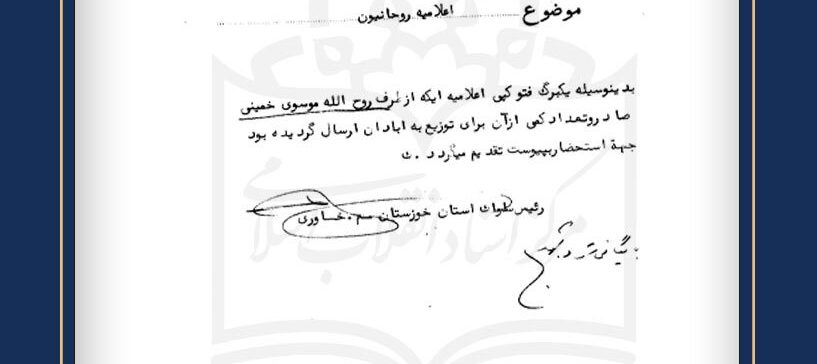 موضوع اعلامیه روحانیون
بدینوسیله یکبرگ فتوکپی اعلامیه ایکه از طرف روح الله موسوی خمینی
صادر و تعداد کمی ازآن برای توزیع به ابادان ارسال گردیده بود
جهة استحضار بپیوست تقدیم میگردد . ث
رئیس ساواک استان خوزستان سم . خساوری
مرکز اسناد انقلاب اسلامی